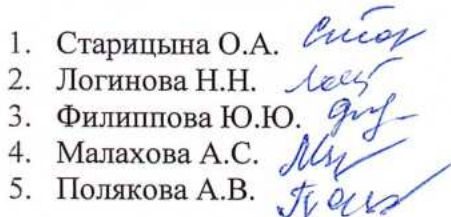 1. Старицына О.А.
2. Логинова Н.Н.
3. Филиппова Ю.Ю.
4. Малахова А.С.
5. Полякова А.В.